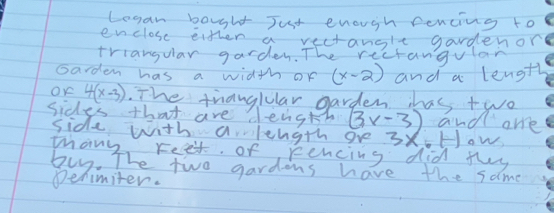 Logan bought Just enough fencing to
enclose either a rectangle garden or
triangular garden. The rectangular
Garden has a width of (x-2) and a length
of 4(x-3). The trianglular garden has two
sides that are length (3x-3) and one
side with a length of 3x. How
many feet of fencing did they
buy. The two gardens have the same
perimiter.